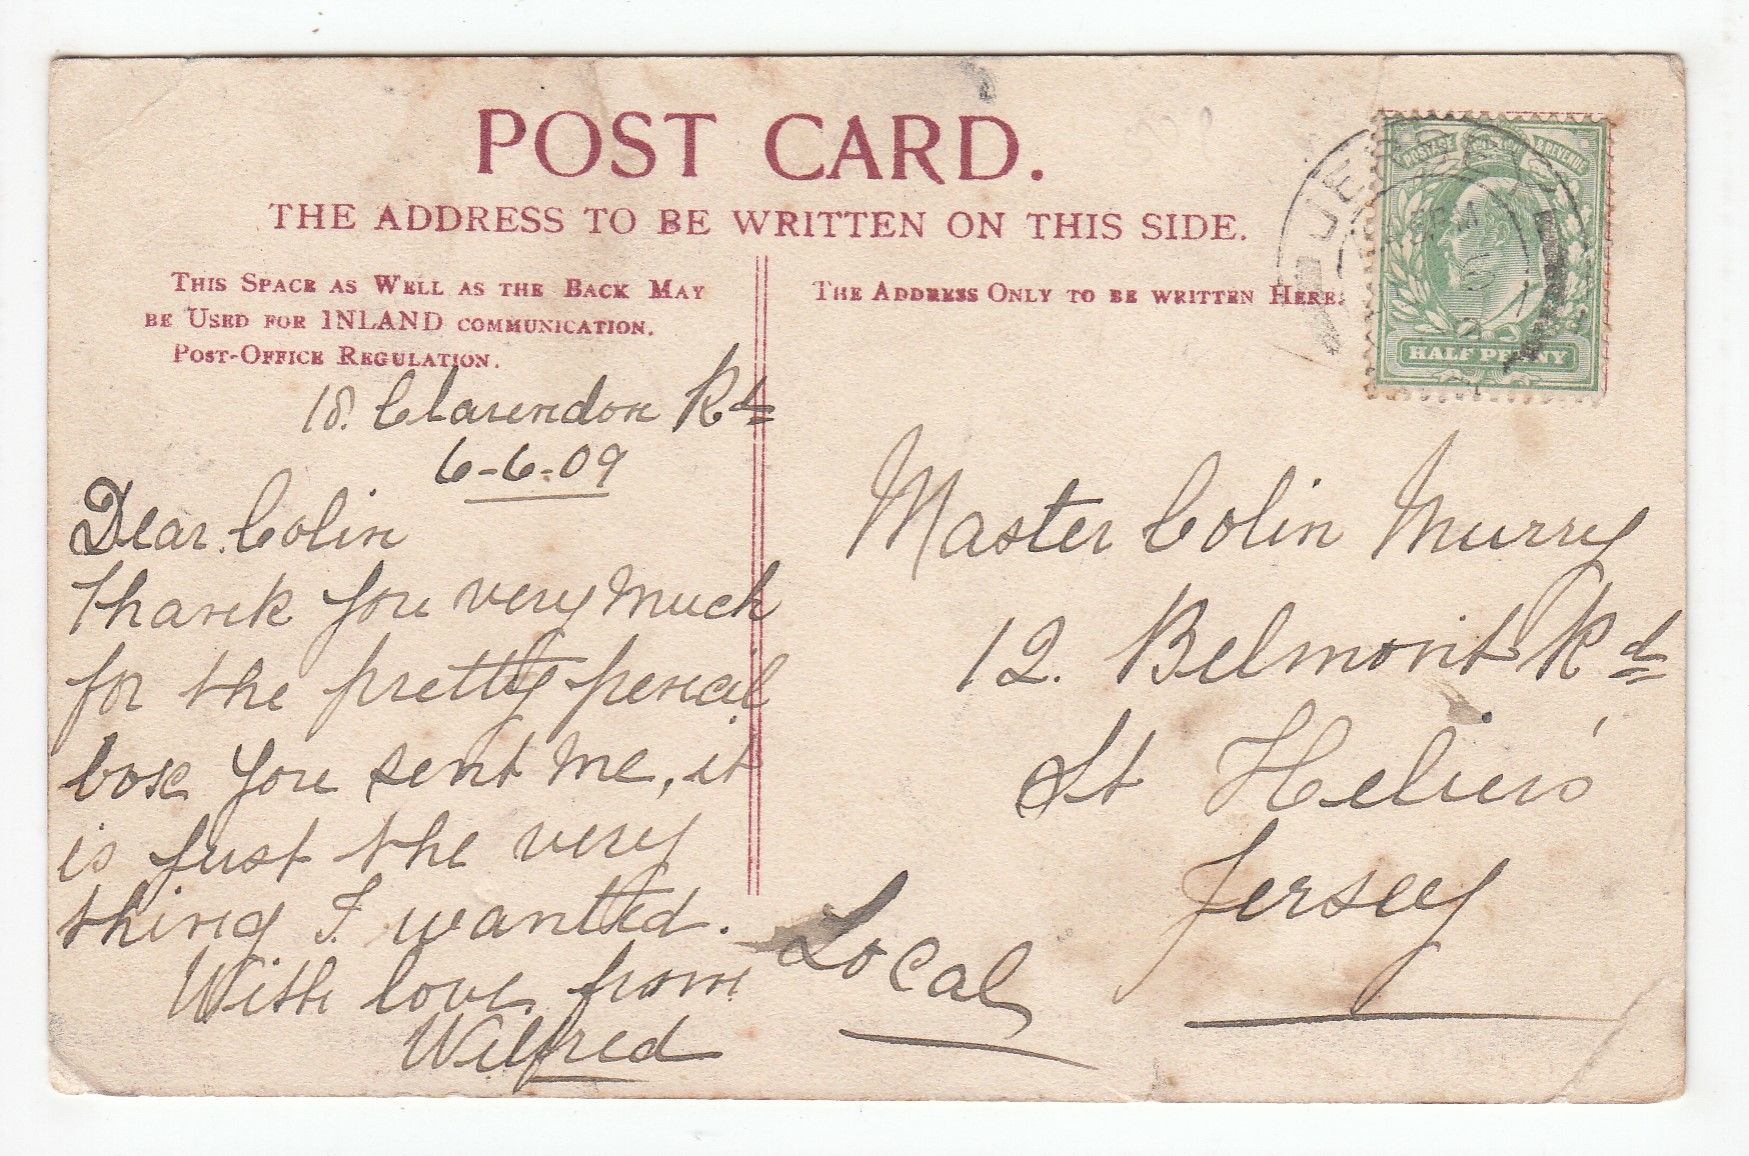 POST CARD.
THE ADDRESS TO BE WRITTEN ON THIS SIDE.
THIS SPACE AS WELL AS THE BACK MAY
BE USED FOR INLAND COMMUNICATION.
POST-OFFICE REGULATION.
18. Clarendon Rd
6-6-09
Dear Colin
Thank you very much
for the pretty pencil
box you sent me, it
is just the very
thing I wanted.
With love from
Wilfred
THE ADDRESS ONLY TO BE WRITTEN HERE.
JERSEY
POSTAGE REVENUE
HALF PENNY
Master Colin Murry
12. Belmont Rd
St Helier's
Jersey
Local